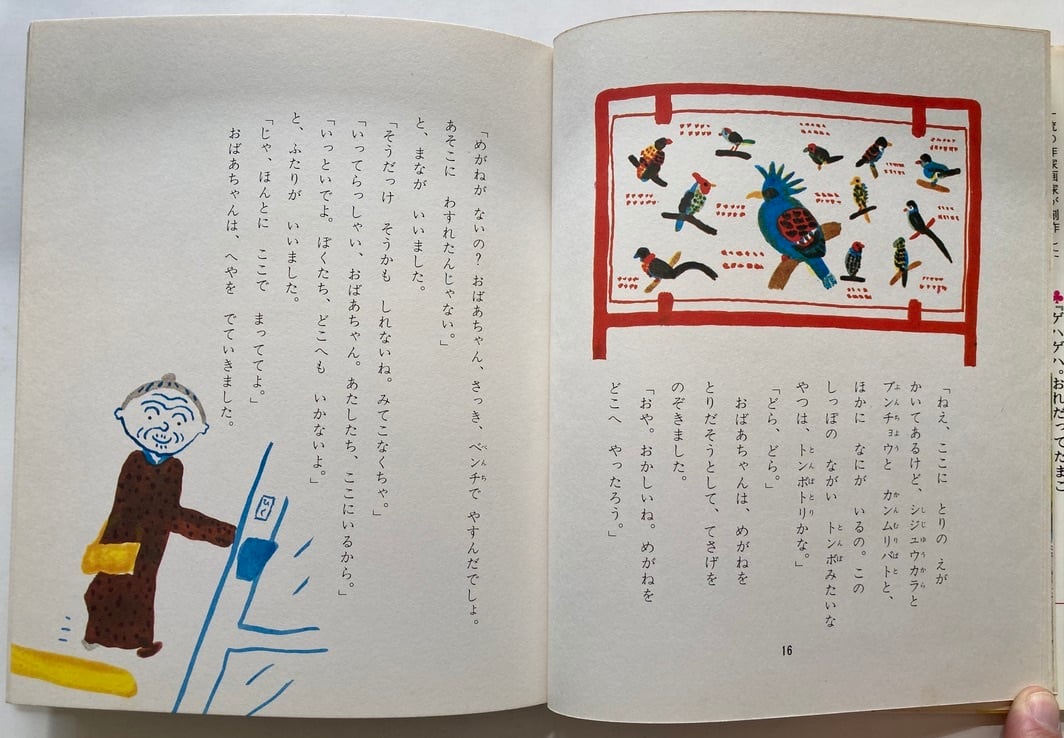 「ねえ、ここに とりの えが
かいてあるけど、シジュウカラと
しじゅうから
ブンチョウと カンムリバトと、
ぶんちょう かんむりばと
ほかに なにが いるの。この
しっぽの ながい トンボみたいな
とんぼ
やつは、トンボトリかな。」
とんぼとり
「どら、どら。」
おばあちゃんは、めがねを
とりだそうとして、てさげを
のぞきました。
「おや。おかしいね。めがねを
どこへ やったろう。」
16
「めがねが ないの? おばあちゃん、さっき、ベンチで やすんだでしょ。
べんち
あそこに わすれたんじゃない。」
と、まなが いいました。
「そうだっけ そうかも しれないね。みてこなくちゃ。」
「いってらっしゃい、おばあちゃん。あたしたち、ここにいるから。」
「いっといでよ。ぼくたち、どこへも いかないよ。」
と、ふたりが いいました。
「じゃ、ほんとに ここで まっててよ。」
おばあちゃんは、へやを でていきました。
♣『ゲハゲハ。おれだってたまご